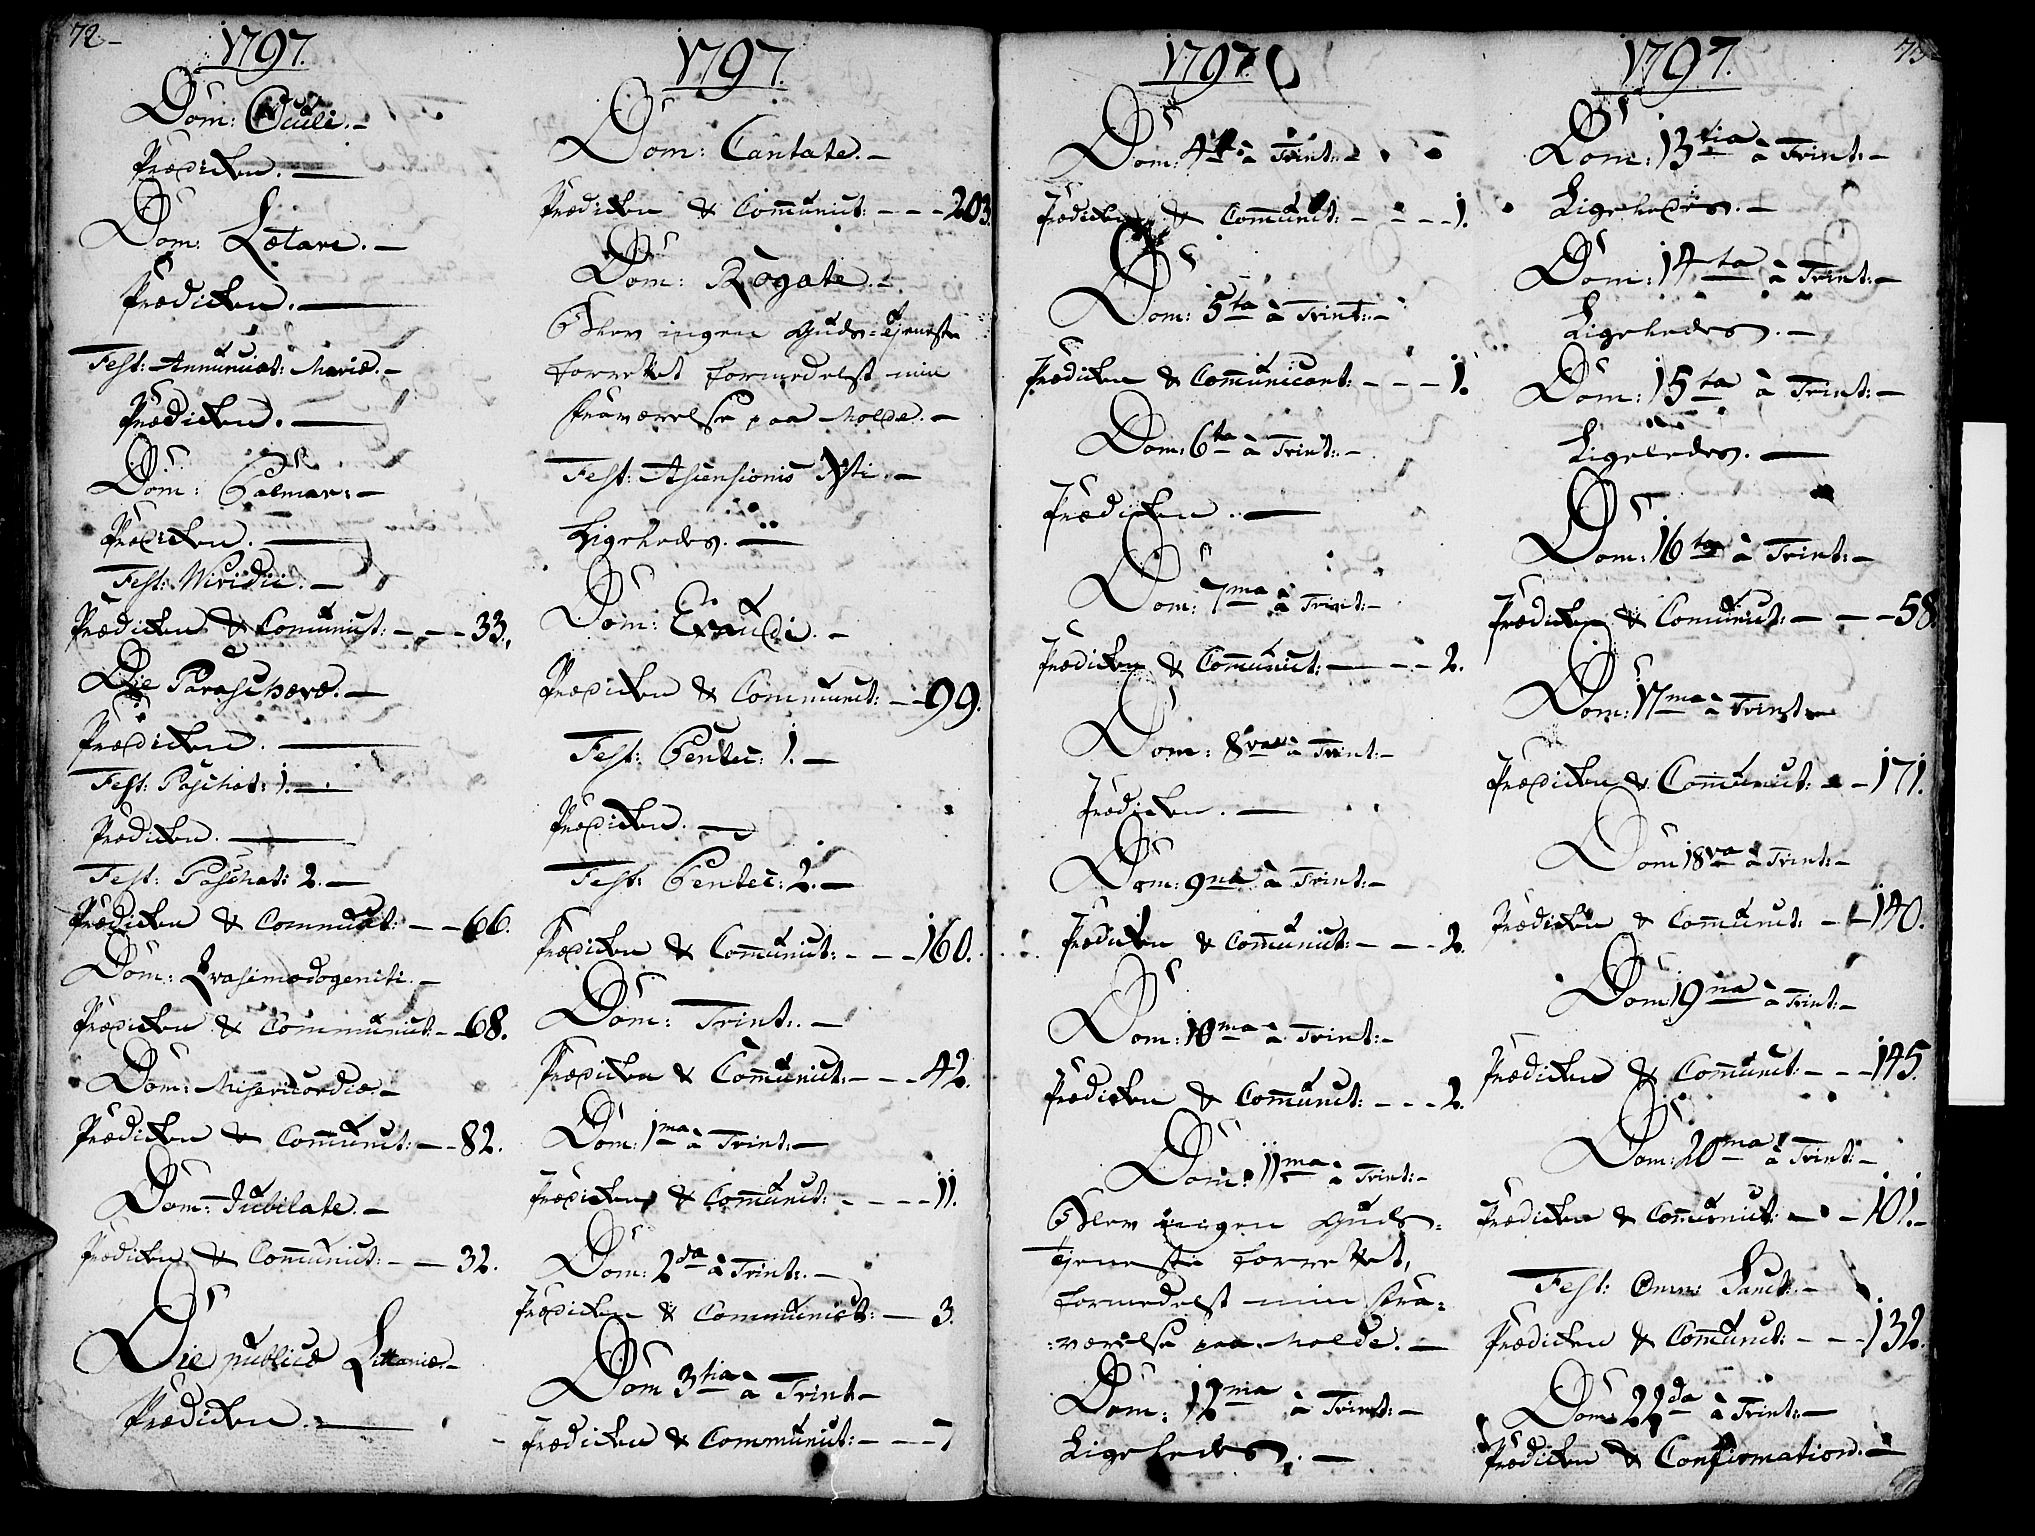 72-
1797.
Dom: Oculi.-
Prædiken.-
Dom: Lætare.-
Prædiken.-
Fest: Annunciat: Mariæ.-
Prædiken.-
Dom: Palmar:-
Prædiken.-
Fest: Viridii.-
Prædiken & Comunict: - - - 33.
Die Parascheve.-
Prædiken.-
Fest: Paschat: 1.-
Prædiken.-
Fest: Paschat: 2.-
Prædiken & Communict: - - 66.
Dom: Qvasimodogeniti.-
Prædiken & Communict: - - 68.
Dom: Misericordiæ.-
Prædiken & Communict: - - 82.
Dom: Jubilate.-
Prædiken & Communict: - - 32.
Die publicæ Littaniæ.-
Prædiken.-
1797.
Dom: Cantate.-
Prædiken & Communict: - - - 203
Dom: Rogate.-
Blev ingen Guds-Tjeneste
forrettet formedelst min
fraværelse paa Molde.-
Fest: Ascensionis Xsti.-
Ligeledes.-
Dom: Exaudi.-
Prædiken & Communict: - - 99.
Fest: Pentec: 1.-
Prædiken.-
Fest: Pentec: 2.-
Prædiken & Communict: - - - 160.
Dom: Trint:.-
Prædiken & Communict: - - - 42.
Dom: 1ma à Trint:-
Prædiken & Communict: - - - - 11.
Dom: 2da à Trint:.-
Prædiken & Communict: - 3.
Dom 3tia à Trint-
Prædiken & Communict: - - - 7
1797.
Dom: 4ta à Trint:-
Prædiken & Communict: - - - - 1.
Dom: 5ta à Trint:-
Prædiken & Communicant: - - - 1.
Dom: 6ta à Trint:-
Prædiken.-
Dom: 7ma à Trint:-
Prædiken & Communict: - - - 2.
Dom: 8va à Trint:-
Prædiken.-
Dom: 9na à Trint:-
Prædiken & Communict: - - - 2.
Dom: 10ma à Trint:-
Prædiken & Communict: - - - 2.
Dom: 11ma à Trint:-
Blev ingen Guds-
Tjeneste forrettet,
formedelst min fra-
:værelse paa Molde.-
Dom: 12ma à Trint:-
Ligeledes.-
73-
1797.
Dom: 13tia à Trint:-
Ligeledes.-
Dom: 14ta à Trint:-
Ligeledes.-
Dom: 15ta à Trint:-
Ligeledes.-
Dom: 16ta à Trint:-
Prædiken & Comunict: - - - 58.
Dom: 17ma à Trint-
Prædiken & Communict: - - 171.
Dom 18va à Trint:-
Prædiken & Communict: - - 140.
Dom 19na à Trint:-
Prædiken & Communict: - - - 145.
Dom: 20ma à Trint:-
Prædiken & Communict: - - 101.-
Fest: Omn: Sanct:-
Prædiken & Communict: - - - 132.
Dom: 22da à Trint:-
Prædiken & Confirmation.-